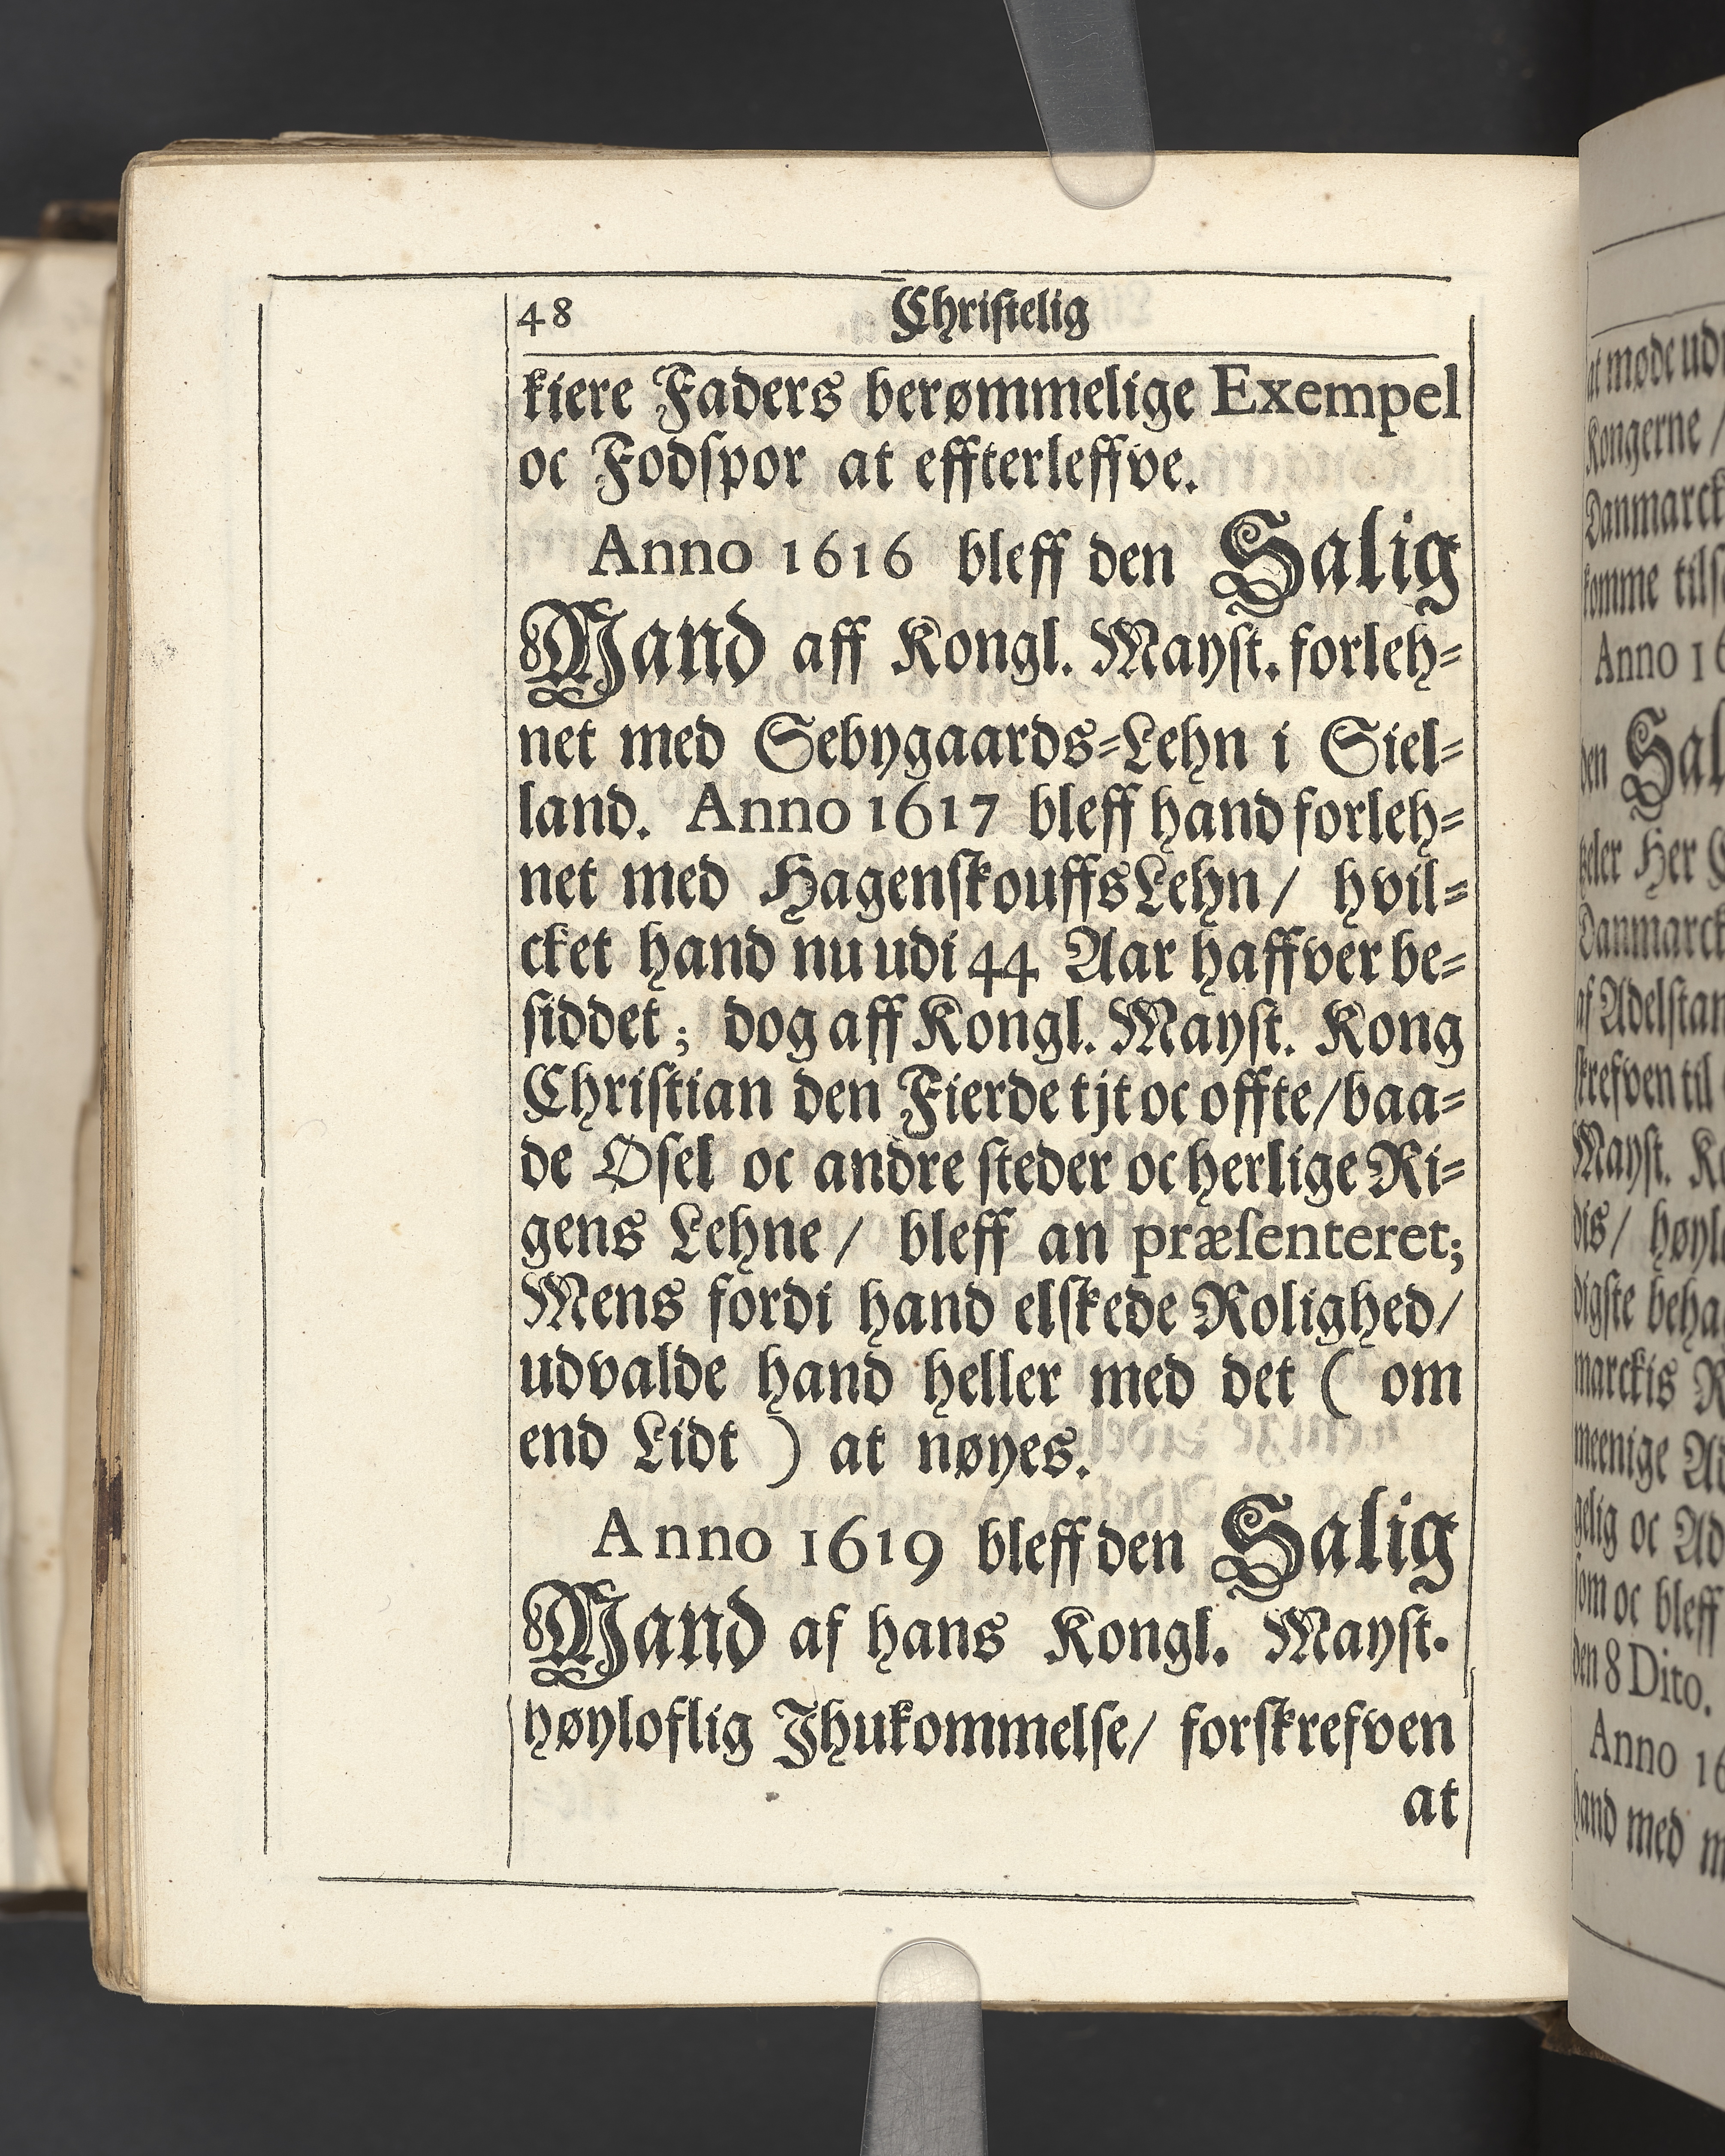 48 Christelig
kiere Faders berømmelige Exempel
oc Fodspor at effterleffve.
Anno 1616 bleff den Salig
Mand aff Kongl. Mayst. forleh=
net med Sebygaards=Lehn i Siel=
land. Anno 1617 bleff hand forleh=
net med HagenskouffsLehn/ hvil=
cket hand nu udi 44 Aar haffver be=
siddet; dog aff Kongl. Mayst. Kong
Christian den Fierde tjt oc offte/baa=
de Osel oc andre steder oc herlige Ri=
gens Lehne/ bleff an præsenteret;
Mens fordi hand elskede Rolighed/
udvalde hand heller med det ( om
end Lidt ) at nøyes.
Anno 1619 bleff den Salig
Mand af hans Kongl. Mayst.
høyloflig Ihukommelse/ forskrefven
at
at møde ud
Kongerne /
Danmarck
komme tils
Anno 16
den Sal
Her
Danmarck
af Adelstan
skrefven til
Mayst. K
dis/ høyl
digste beha
marckis R
meenige Ad
gelig oc Ad
som oc bleff
den 8 Dito.
Anno 16
hand med m